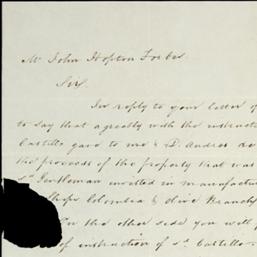 Mr John Hopton Forbes
Sir,
In reply to your letter of
to say that agreably with the instruct
Castillo gave to me & D. Andres
the proceeds of the property that was
sd. Gentleman invested in manufactur
Ships Colombia & Olive Branch
On the other side you with
of instruction of Sr. Castillo